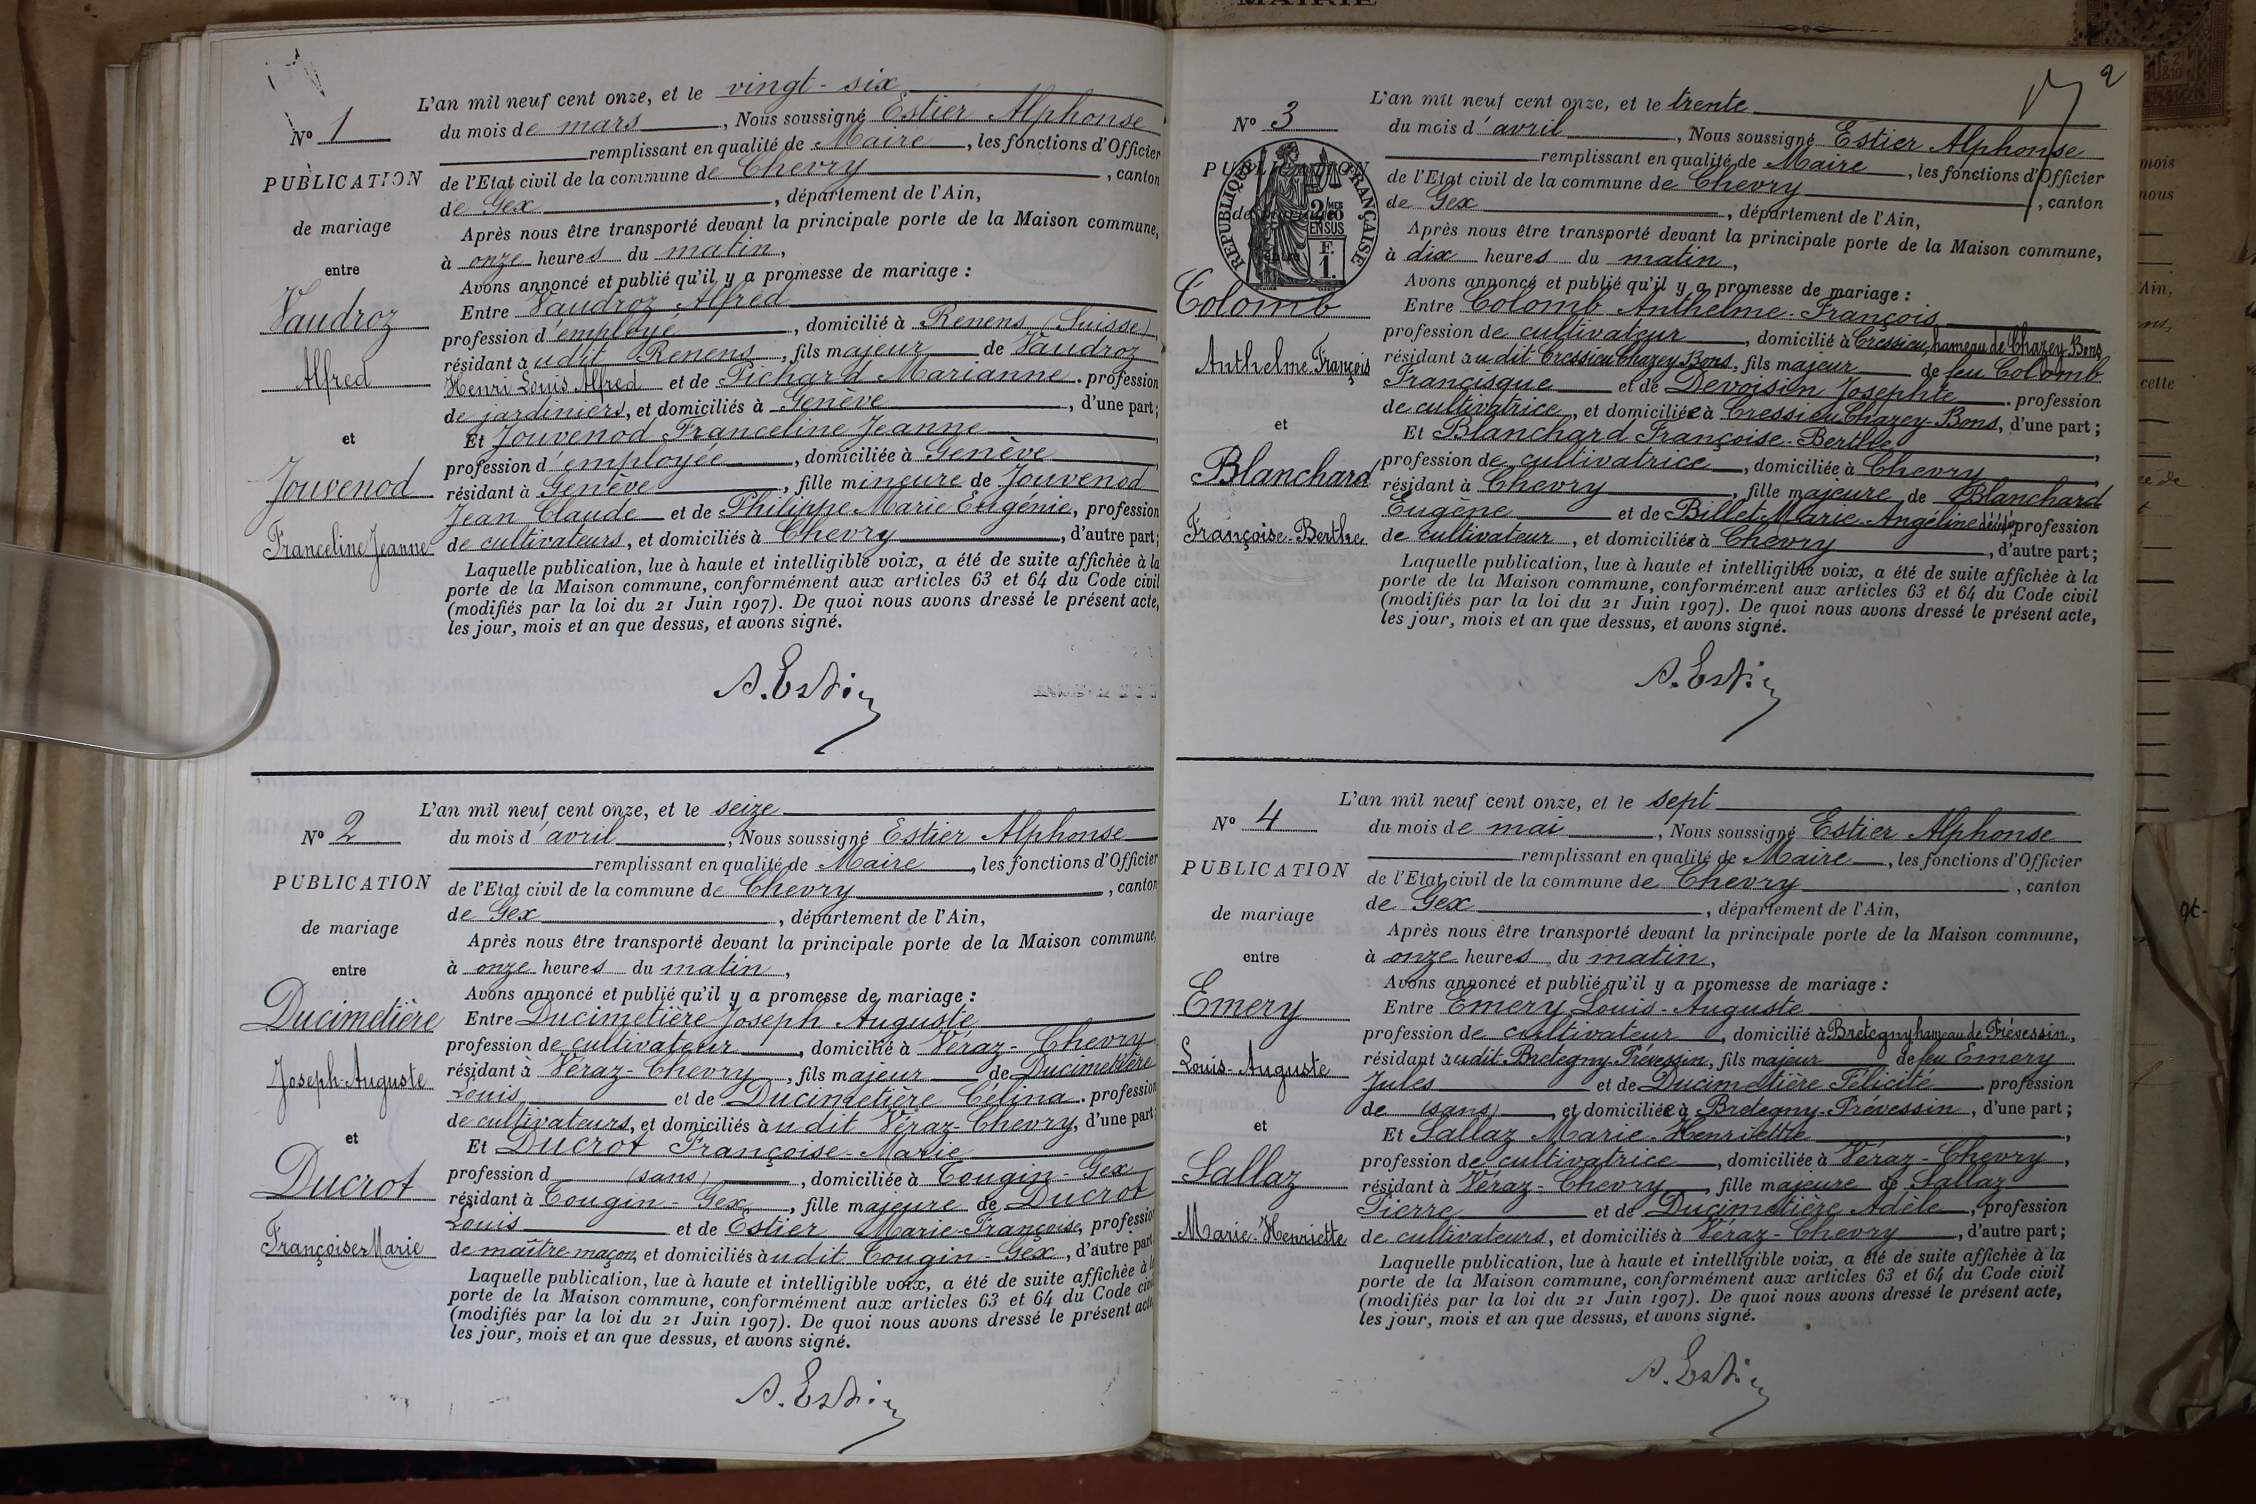 MAIRIE
L'an mil neuf cent onze, et le vingt-six
Nº 1
du mois de mars, Nous soussigné Estier Alphonse
remplissant en qualité de Maire, les fonctions d'Officier
PUBLICATION
de l'Etat civil de la commune de Chevry, canton
de Gex, département de l'Ain,
de mariage
Après nous être transporté devant la principale porte de la Maison commune,
à onze heures du matin,
entre
Avons annoncé et publié qu'il y a promesse de mariage :
Vaudroz
Entre Vaudroz Alfred
profession d'employé, domicilié à Renens (Suisse)
résidant audit Renens, fils majeur de Vaudroz
Alfred
Henri Louis Alfred et de Pichard Marianne. profession
de jardiniers, et domiciliés à Genève, d'une part;
et
Et Jouvenod Franceline Jeanne,
profession d'employée, domiciliée à Genève,
Jouvenod
résidant à Genève, fille mineure de Jouvenod
Jean Claude et de Philippe Marie Eugénie, profession
Franceline Jeanne
de cultivateurs, et domiciliés à Chevry, d'autre part;
Laquelle publication, lue à haute et intelligible voix, a été de suite affichée à la
porte de la Maison commune, conformément aux articles 63 et 64 du Code civil
(modifiés par la loi du 21 Juin 1907). De quoi nous avons dressé le présent acte,
les jour, mois et an que dessus, et avons signé.
A. Estier
L'an mil neuf cent onze, et le seize
Nº 2
du mois d'avril, Nous soussigné Estier Alphonse
remplissant en qualité de Maire, les fonctions d'Officier
PUBLICATION
de l'Etat civil de la commune de Chevry, canton
de Gex, département de l'Ain,
de mariage
Après nous être transporté devant la principale porte de la Maison commune,
entre
à onze heures du matin,
Avons annoncé et publié qu'il y a promesse de mariage :
Ducimetière
Entre Ducimetière Joseph Auguste
profession de cultivateur, domicilié à Véraz-Chevry
Joseph-Auguste
résidant à Véraz-Chevry, fils majeur de Ducimetière
Louis et de Ducimetière Célina. profession
de cultivateurs, et domiciliés audit Véraz-Chevry, d'une part;
et
Et Ducrot Françoise-Marie
Ducrot
profession d (sans), domiciliée à Tougin-Gex
résidant à Tougin-Gex, fille majeure de Ducrot
Louis et de Estier Marie-Françoise, profession
Françoise Marie
de maître-maçon, et domiciliés audit Tougin-Gex, d'autre part
Laquelle publication, lue à haute et intelligible voix, a été de suite affichée à la
porte de la Maison commune, conformément aux articles 63 et 64 du Code civil
(modifiés par la loi du 21 Juin 1907). De quoi nous avons dressé le présent acte,
les jour, mois et an que dessus, et avons signé.
A. Estier
2
L'an mil neuf cent onze, et le trente
Nº 3
du mois d'avril, Nous soussigné Estier Alphonse
remplissant en qualité de Maire, les fonctions d'Officier
PUBLICATION
RÉPUBLIQUE FRANÇAISE
2/10MES EN SUS
F. 1.
de l'Etat civil de la commune de Chevry, canton
de mariage
de Gex, département de l'Ain,
Après nous être transporté devant la principale porte de la Maison commune,
entre
à dix heures du matin,
Avons annoncé et publié qu'il y a promesse de mariage :
Colomb
Entre Colomb Anthelme-François
profession de cultivateur, domicilié à Cressieu, hameau de Chazey-Bons
Anthelme François
résidant audit Cressieu Chazey-Bons, fils majeur de feu Colomb
Francisque et de Devoisin Josephte. profession
de cultivatrice, et domiciliée à Cressieu Chazey-Bons, d'une part;
et
Et Blanchard Françoise-Berthe,
Blanchard
profession de cultivatrice, domiciliée à Chevry,
résidant à Chevry, fille majeure de Blanchard
Eugène et de Billet Marie Angéline décédée, profession
Françoise-Berthe
de cultivateur, et domiciliés à Chevry, d'autre part;
Laquelle publication, lue à haute et intelligible voix, a été de suite affichée à la
porte de la Maison commune, conformément aux articles 63 et 64 du Code civil
(modifiés par la loi du 21 Juin 1907). De quoi nous avons dressé le présent acte,
les jour, mois et an que dessus, et avons signé.
A. Estier
L'an mil neuf cent onze, et le sept
Nº 4
du mois de mai, Nous soussigné Estier Alphonse
remplissant en qualité de Maire, les fonctions d'Officier
PUBLICATION
de l'Etat civil de la commune de Chevry, canton
de Gex, département de l'Ain,
de mariage
Après nous être transporté devant la principale porte de la Maison commune,
entre
à onze heures du matin,
Avons annoncé et publié qu'il y a promesse de mariage :
Emery
Entre Emery Louis-Auguste
profession de cultivateur, domicilié à Bretegny hameau de Prévessin,
Louis-Auguste
résidant audit Bretegny-Prévessin, fils majeur de feu Emery
Jules et de Ducimetière Félicité. profession
de (sans), et domiciliée à Bretegny-Prévessin, d'une part;
et
Et Sallaz Marie-Henriette,
Sallaz
profession de cultivatrice, domiciliée à Véraz-Chevry,
résidant à Véraz-Chevry, fille majeure de Sallaz
Pierre et de Ducimetière Adèle, profession
Marie-Henriette
de cultivateurs, et domiciliés à Véraz-Chevry, d'autre part;
Laquelle publication, lue à haute et intelligible voix, a été de suite affichée à la
porte de la Maison commune, conformément aux articles 63 et 64 du Code civil
(modifiés par la loi du 21 Juin 1907). De quoi nous avons dressé le présent acte,
les jour, mois et an que dessus, et avons signé.
A. Estier
mois
nous
Ain,
cette